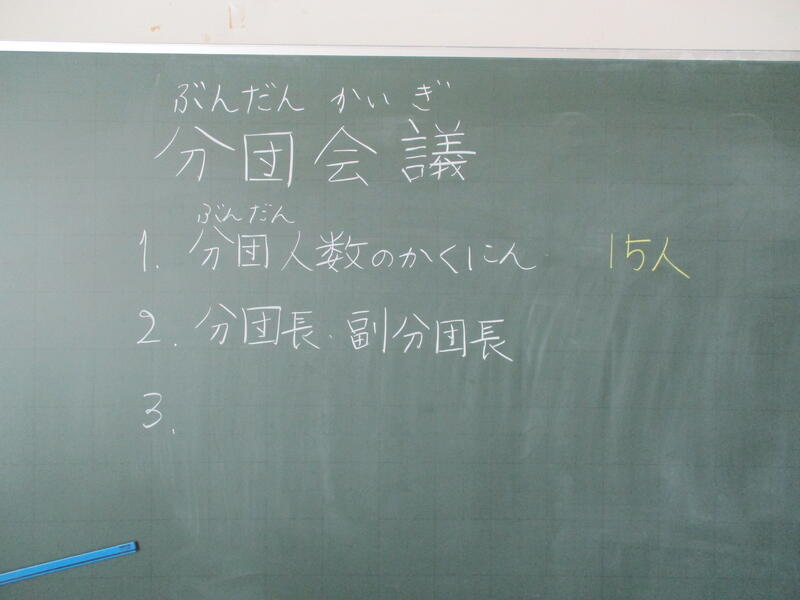 ぶんだん かいぎ
分団会議
ぶんだん
1. 分団人数のかくにん 15人
2. 分団長・副分団長
3.